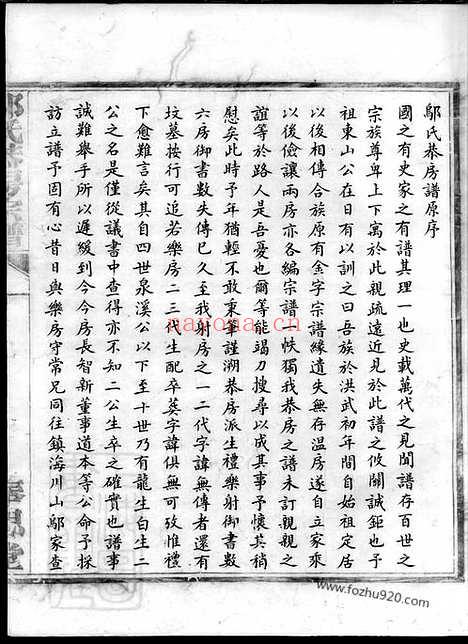 鄔氏恭房譜原序
國之有史家之有譜其理一也史載萬代之見聞譜存百世之
宗族尊卑上下寓於此親疏遠近見於此譜之攸關誠鉅也予
祖東山公在日有以訓之曰吾族於洪武初年間自始祖定居
以後相傳合族原有金字宗譜緣遺失無存溫房遂自立家乘
以後儉讓兩房亦各編宗譜一帙獨我恭房之譜未訂親親之
誼等於路人是吾憂也爾等能竭力搜尋以成其事予懷其稍
慰矣此時予年猶輕不敢秉筆謹溯恭房派生禮樂射御書數
六房御書數失傳已久至我射房之一二代字諱無傳者還有
坟墓按行可追若樂房二三代生配卒葬字諱俱無可攷惟禮
下愈難言矣其自四世泉溪公以下至十世乃有龍生白生二
公之名是僅從議書中查得亦不知二公生卒之確實也譜事
誠難舉手所以遲緩到今今房長智新董事道本等公命予採
訪立譜予固有心昔日與樂房守常兄同往鎮海川山鄔家查
nayona.cn
www.fozhu920.com